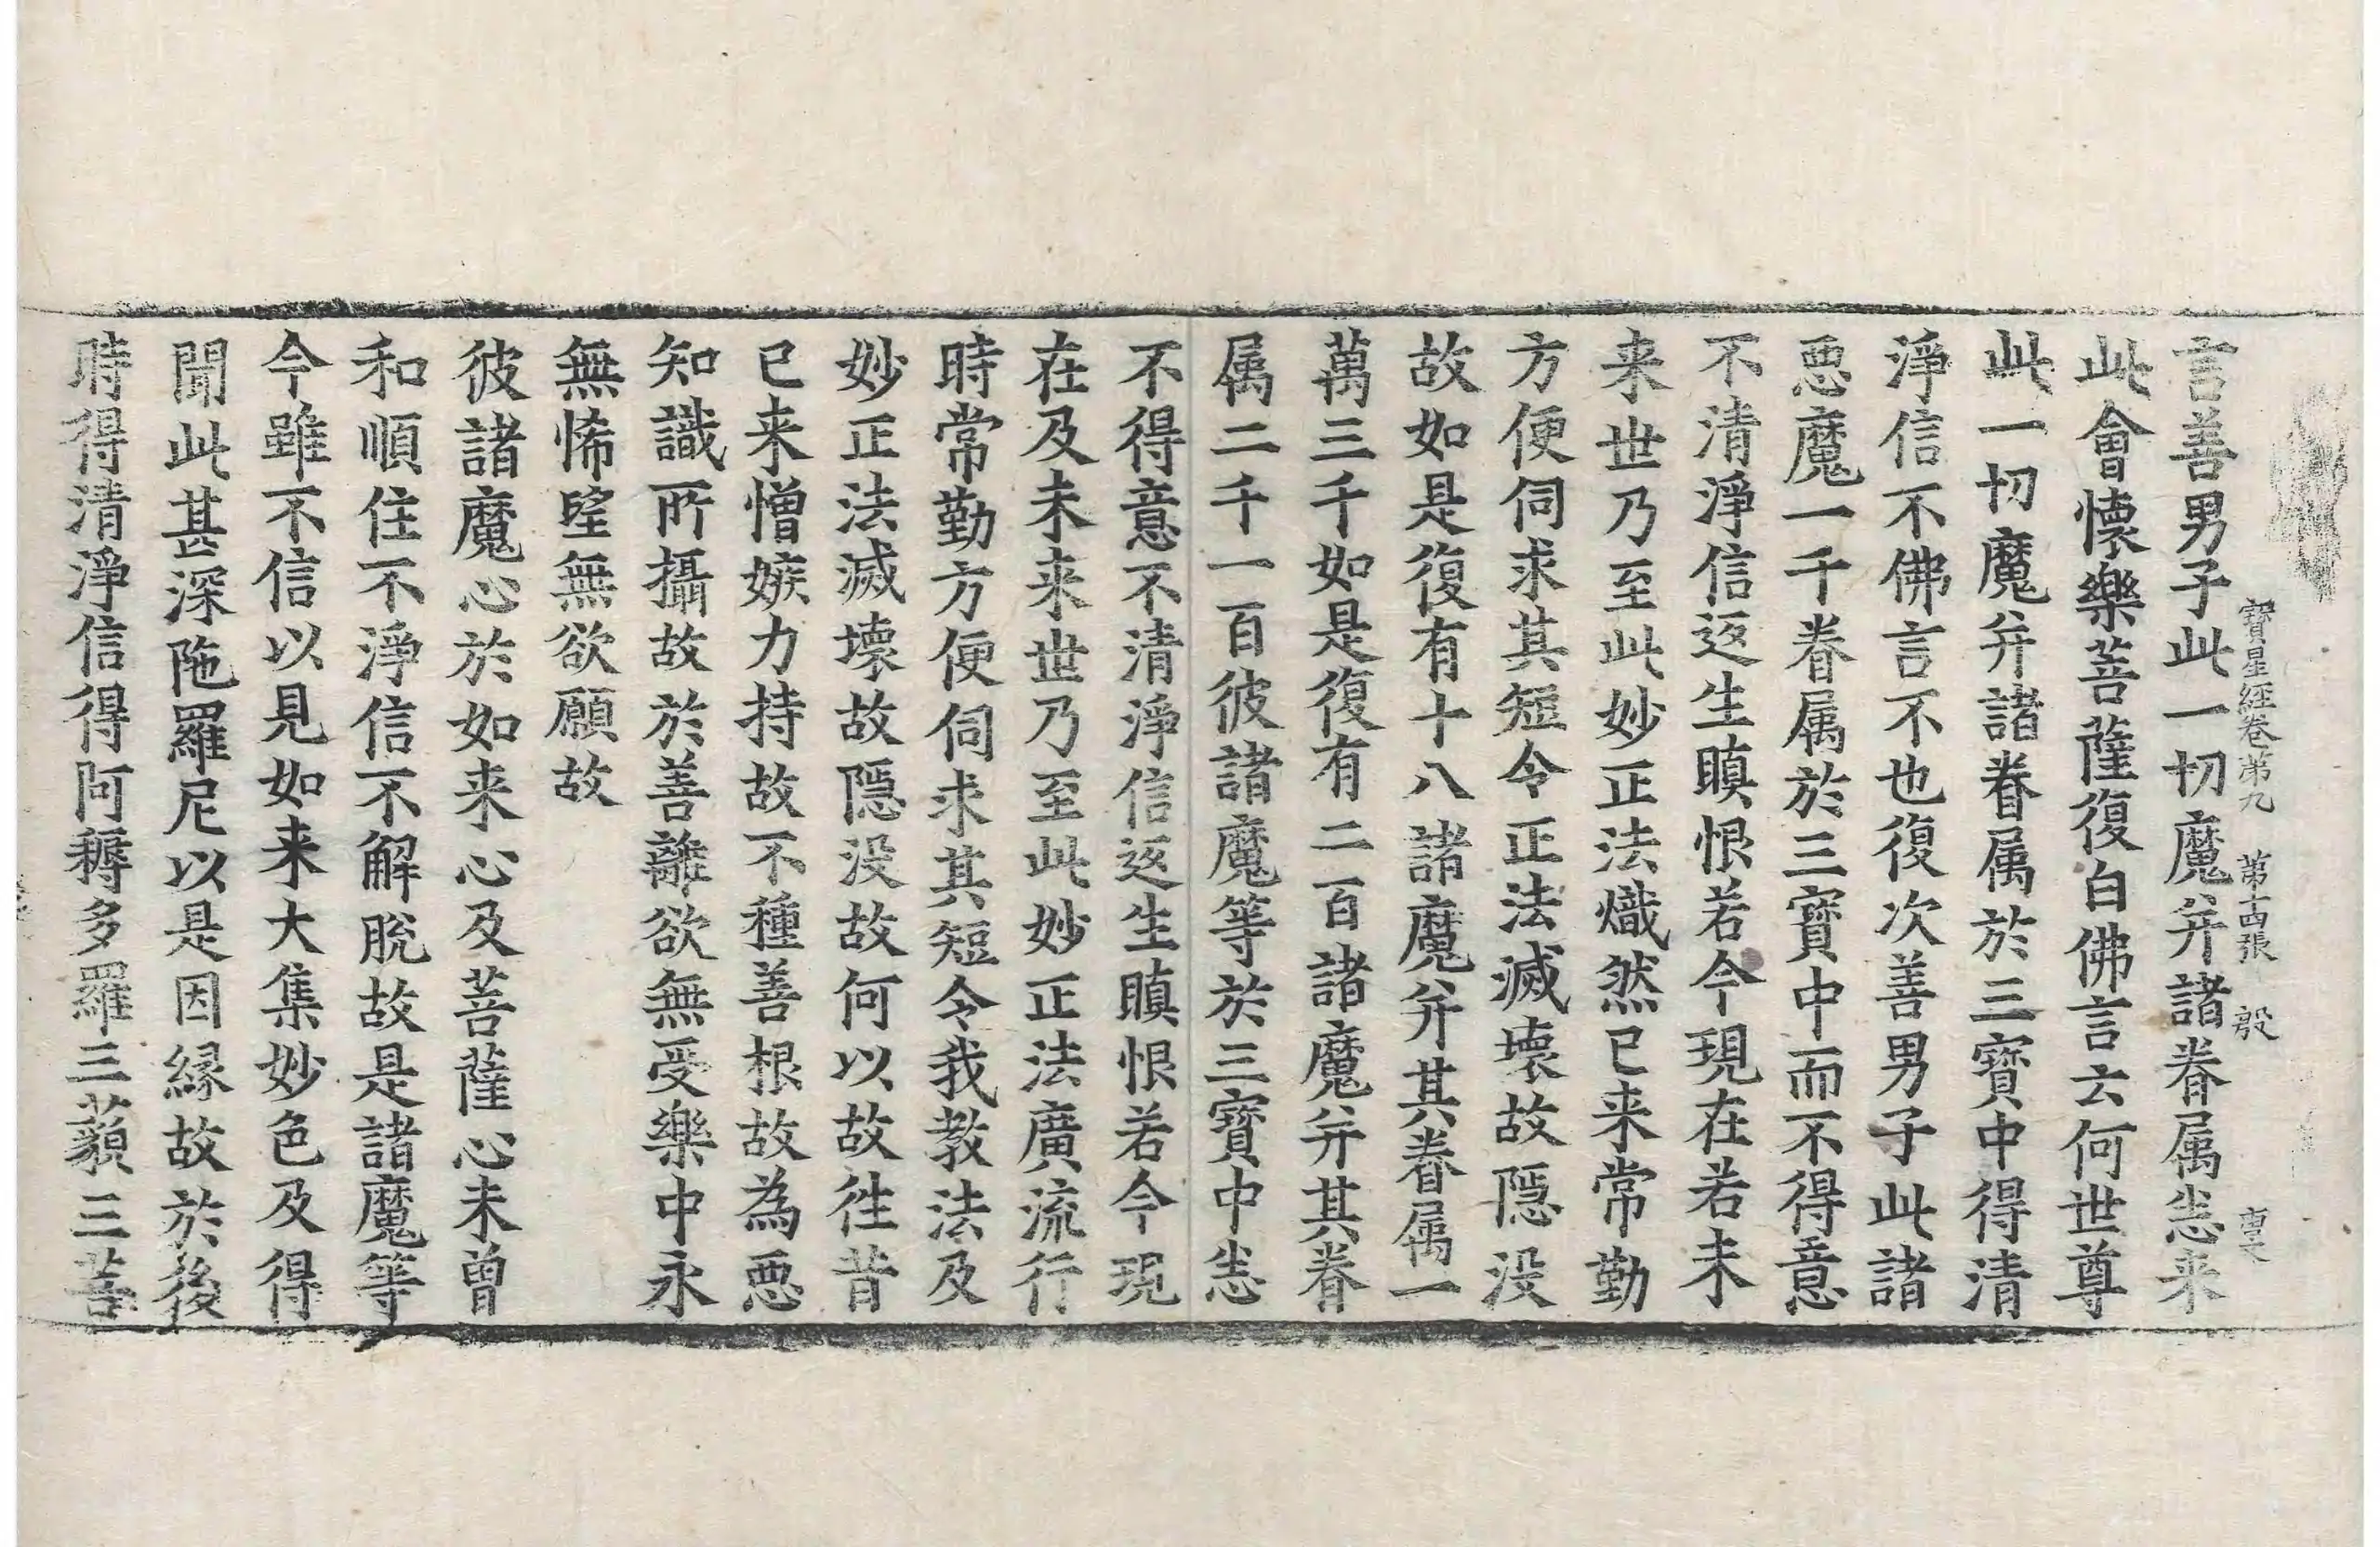 寶星經卷第九 第十四張 殷
言善男子此一切魔并諸眷属悉来
此會懐樂菩薩復白佛言云何世尊
此一切魔并諸眷属於三寶中得清
淨信不佛言不也復次善男子此諸
悪魔一千眷属於三寶中而不得意
不清淨信返生瞋恨若今現在若未
来世乃至此妙正法熾然已来常勤
方便伺求其短令正法滅壊故隠没
故如是復有十八諸魔并其眷属一
萬三千如是復有二百諸魔并其眷
属二千一百彼諸魔等於三寶中悉
不得意不清淨信返生瞋恨若今現
在及未来世乃至此妙正法廣流行
時常勤方便伺求其短令我教法及
妙正法滅壊故隠没故何以故徃昔
已来憎嫉力持故不種善根故為悪
知識所攝故於善離欲無受樂中永
無悕望無欲願故
彼諸魔心於如来心及菩薩心未曾
和順住不淨信不解脱故是諸魔等
今雖不信以見如来大集妙色及得
聞此甚深陁羅尼以是因縁故於後
時得清淨信得阿耨多羅三藐三菩